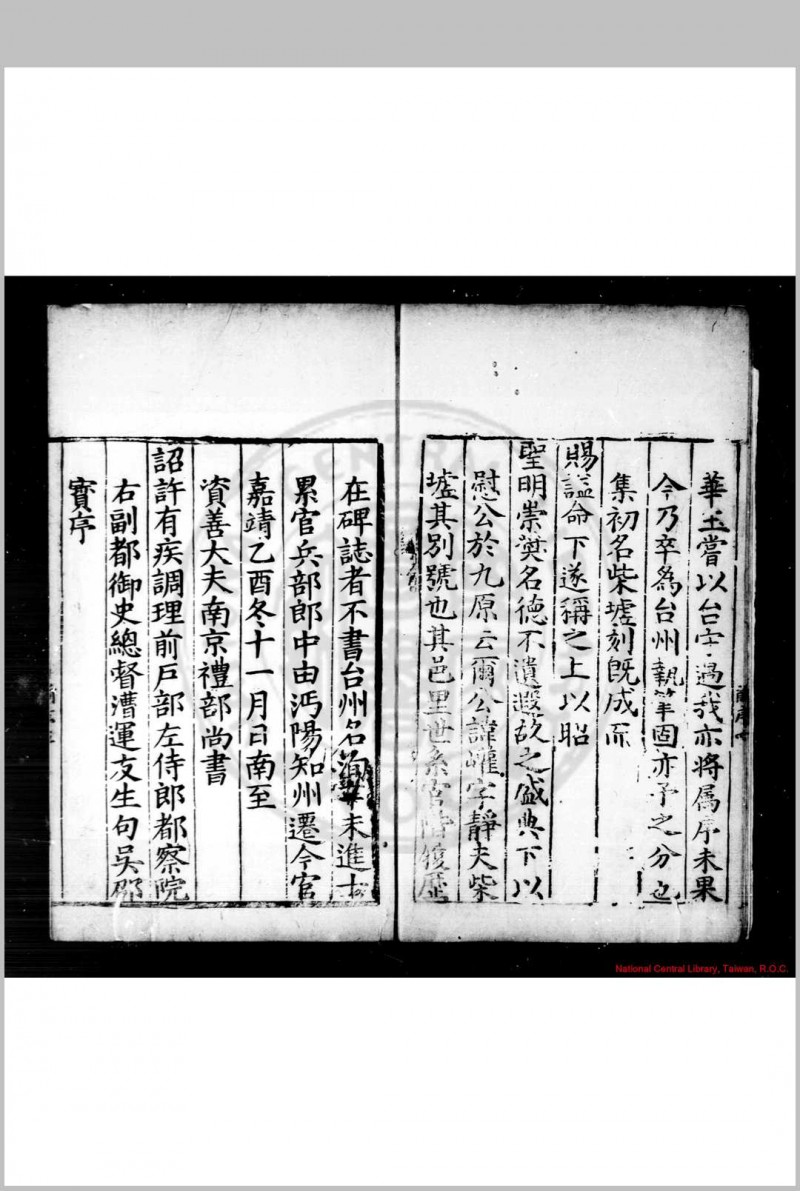 華玉嘗以台守過我亦將屬序未果
今乃卒為台州執筆固亦予之分也
集初名柴墟刻既成而
賜謚命下遂稱之上以昭
聖明崇奬名德不遺遐故之盛典下以
慰公於九原云爾公諱巏字靜夫柴
墟其別號也其邑里世系官階履歷
在碑誌者不書台州名 未進士
累官兵部郎中由沔陽知州遷今官
嘉靖乙酉冬十一月日南至
資善大夫南京禮部尚書
詔許有疾調理前戶部左侍郎都察院
右副都御史總督漕運友生句吳邵
寳序
National Central Library, Taiwan, R.O.C.